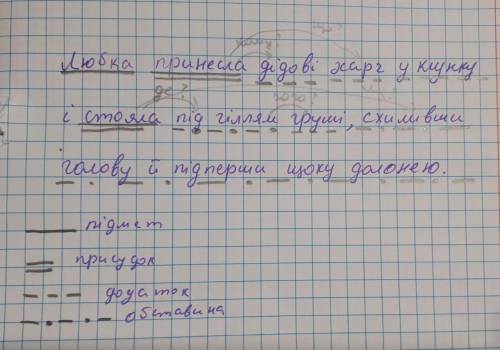 Любка принесла дідові харч у клунку
і стояла під гіллям груші, схиливши
голову й підперши щоку долонею.
де?
підмет
присудок
додаток
обставина